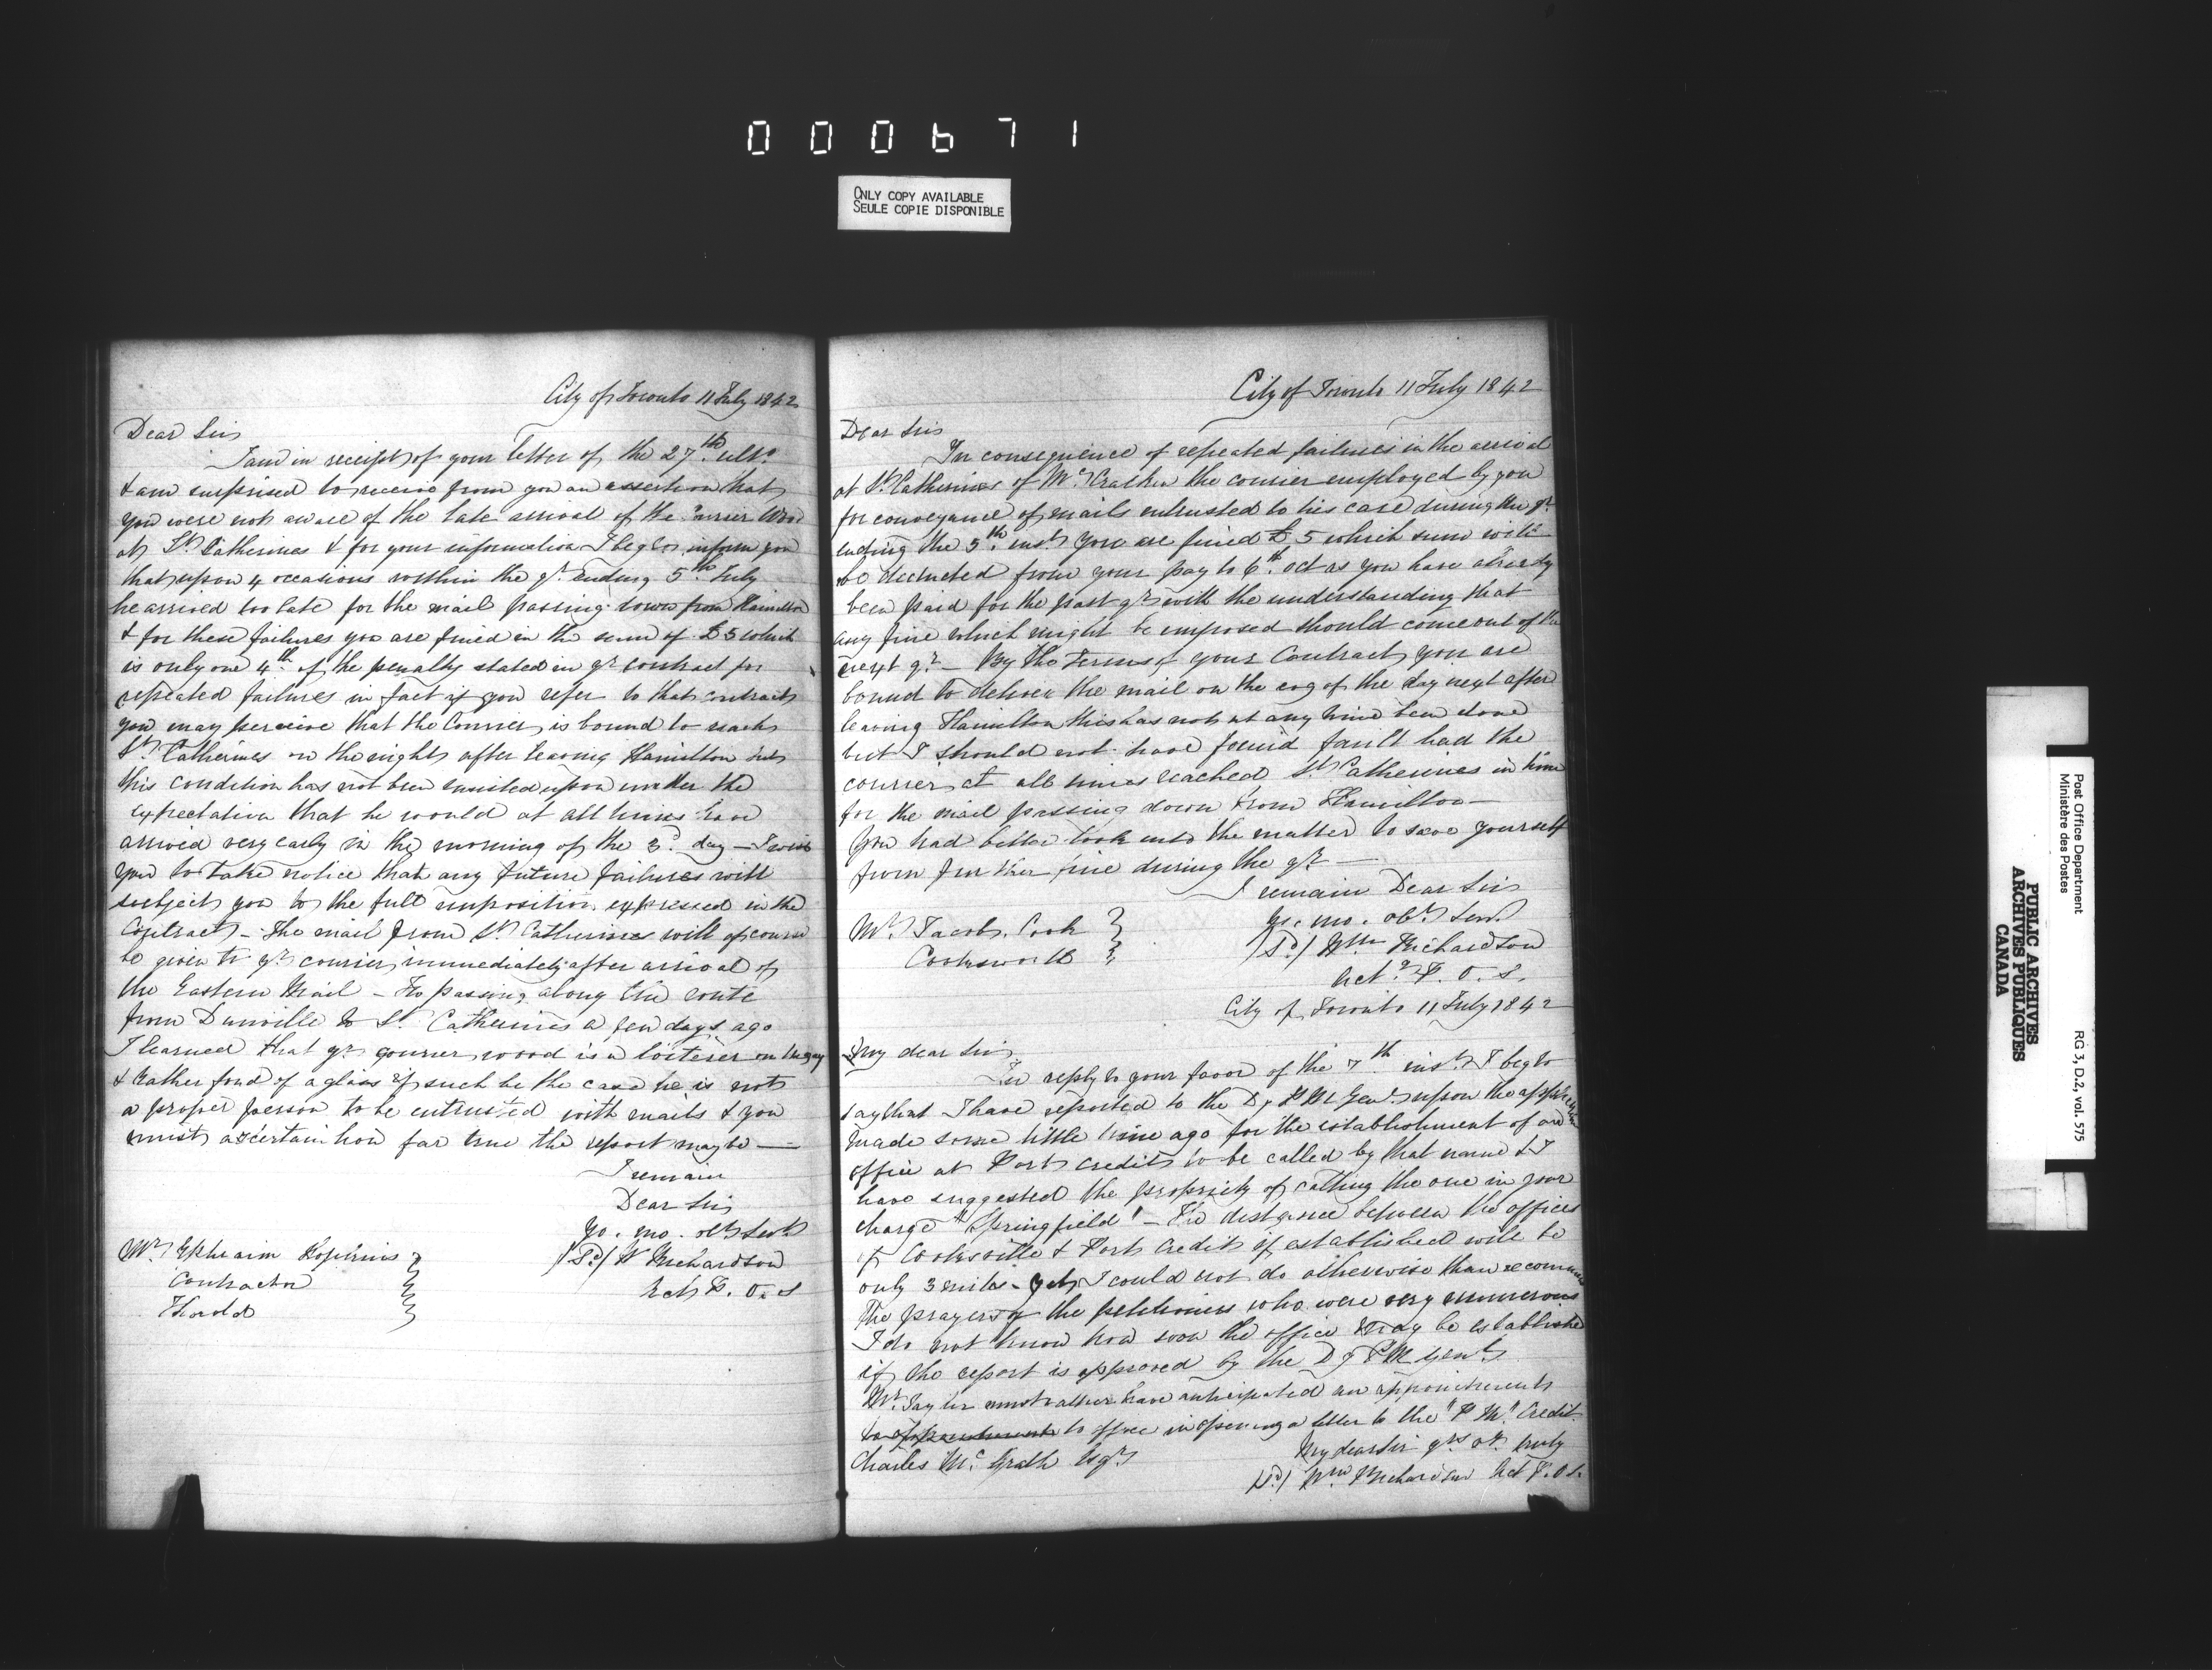 000671
ONLY COPY AVAILABLE
SEULE COPIE DISPONIBLE
City of Toronto 11 July 1842
Dear Sir
I am in receipt of your letter of the 27th ulto
& am surprised to receive from you an assertion that
you were not aware of the late arrival of the Courier Wood
at St Catherines & for your information I beg to inform you
that upon 4 occasions within the qr ending 5th July
he arrived too late for the mail passing down from Hamilton
& for these failures you are fined in the sum of £5 which
is only one 4th of the penalty stated in yr contract for
repeated failures in fact if you refer to that contract
you may perceive that the Courier is bound to reach
St Catherines on the night after leaving Hamilton but
this condition has not been insisted upon under the
expectation that he would at all times have
arrived very early in the morning of the 3d day — I wish
you to take notice that any future failures will
subject you to the full imposition expressed in the
Contract — The mail from St Catherines will of course
be given to yr courier immediately after arrival of
the Eastern Mail — In passing along the route
from Dunville to St Catherines a few days ago
I learned that yr courier wood is a loiterer on the way
& rather fond of a glass if such be the case he is not
a proper person to be entrusted with mails & you
must ascertain how far true the report may be —
I remain
Dear Sir
Yo. mo. obt Servt
(Sd) W Richardson
Act P. O. S
Mr Ephraim Hopkins
Contractor
Thorold
City of Toronto 11 July 1842
Dear Sir
In consequence of repeated failures in the arrival
at St Catherines of the courier employed by you
for conveyance of mails entrusted to his care during the qr
ending the 5th inst you are fined £5 which sum will
be deducted from your pay to 6th Oct as you have already
been paid for the past qr with the understanding that
any fine which might be imposed should come out of the
next qr — By the Terms of your Contract you are
bound to deliver the mail on the evg of the day next after
leaving Hamilton this has not at any time been done
but I should not have found fault had the
courier at all times reached St Catherines in time
for the mail passing down from Hamilton —
You had better look into the matter to save yourself
from further fine during the qr —
I remain Dear Sir
Yo. mo. obt Servt
(Sd) Wm Richardson
Actg P. O. S.
Mr Jacob Cook
City of Toronto 11 July 1842
My dear Sir
In reply to your favor of the 7th inst I beg to
say that I have reported to the Dy P M Genl upon the application
made some little time ago for the establishment of an
office at Port Credit to be called by that name & I
have suggested the propriety of calling the one in your
charge "Springfield" — The distance between the offices
of Cooksville & Port Credit if established will be
only 3 miles — yet I could not do otherwise than recommend
the prayer of the petitioners who were very numerous
I do not know how soon the office may be established
if the report is approved by the Dy P M Genl
Mr Taylor must rather have anticipated an appointment
to office in opening a letter to the "P M" Credit
My dear Sir yrs truly
(Sd) Wm Richardson Act P. O. S.
Charles McGrath Esqr
Post Office Department
Ministère des Postes
RG 3, D.2, vol. 575
PUBLIC ARCHIVES
ARCHIVES PUBLIQUES
CANADA